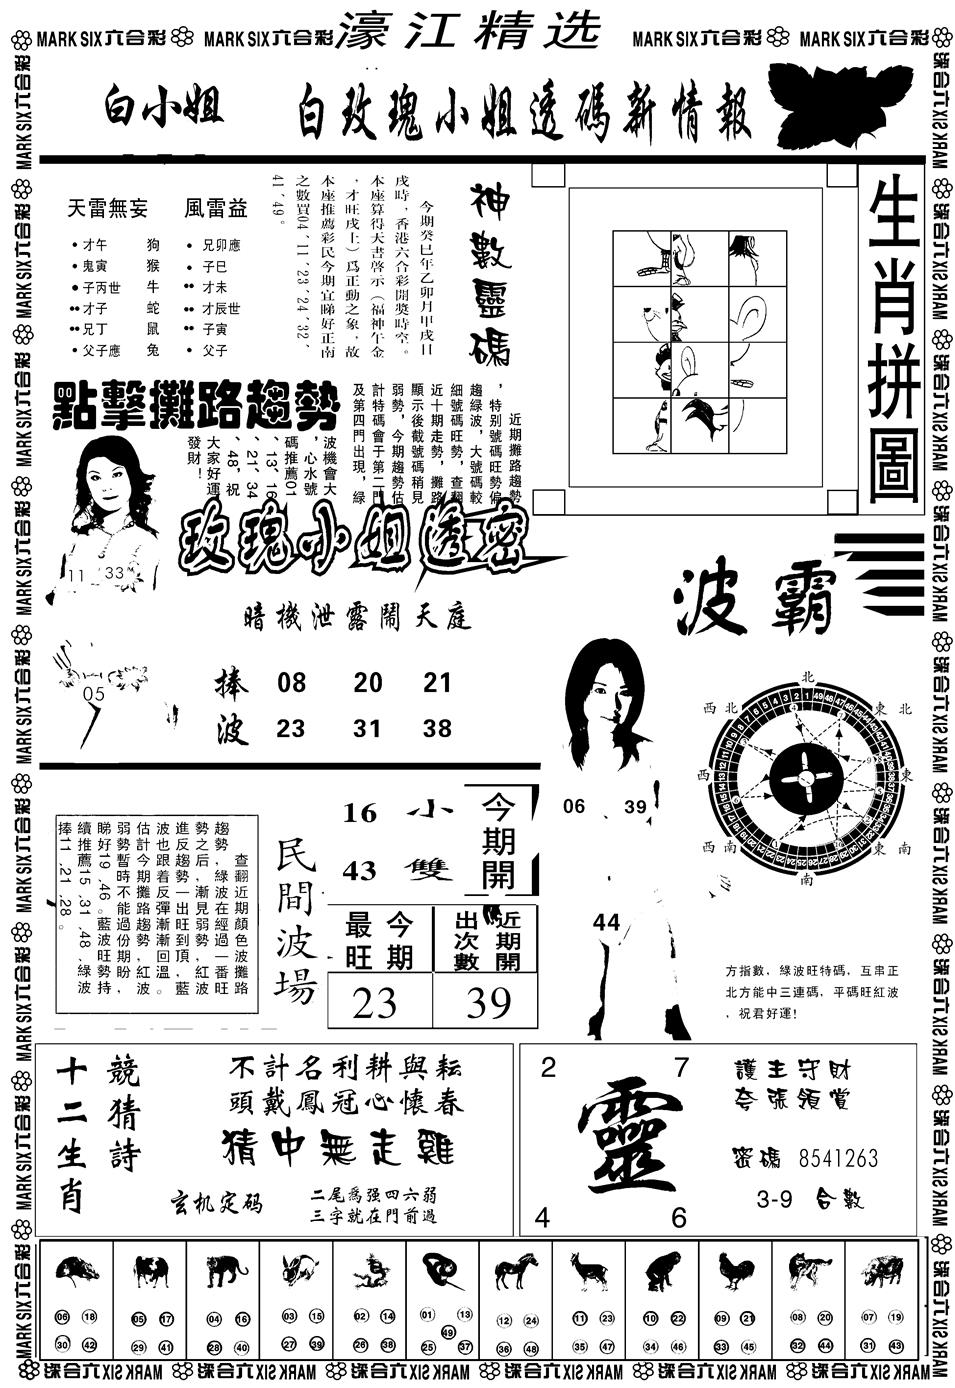 MARK SIX六合彩 MARK SIX六合彩 濠江精选 MARK SIX六合彩 MARK SIX六合彩
白小姐 白玫瑰小姐透碼新情報
天雷無妄 風雷益
•才午 狗 •兄卯應
•鬼寅 猴 •子巳
•子丙世 牛 ••才未
••才子 蛇 ••才辰世
••兄丁 鼠 ••子寅
•父子應 兔 •父子
神數靈碼
今期癸巳年乙卯月甲戌日
戌時，香港六合彩開獎時空。
本座算得天書啓示（福神午金
，才旺戌上）爲正動之象，故
本座推薦彩民今期宜睇好正南
之數買04、11、23、24、32、
41、49。
生肖拼圖
點擊攤路趨勢
近期攤路趨勢
，特别號碼旺勢偏
趨緑波，大號碼較
細號碼旺勢，查翻
近十期走勢，攤路
顯示後截號碼稍見
弱勢，今期趨勢估
計特碼會于第二門
及第四門出現，緑
波機會大
，心水號
碼推薦01
、13、16
、21、34
、48，祝
大家好運
發財！
玫瑰小姐透密
11 33
05
暗機泄露鬧天庭
捧 08 20 21
波 23 31 38
波霸
06 39
44
北
西北 東北
西 東
西南 東南
南
方指數，綠波旺特碼，互串正
北方能中三連碼，平碼旺紅波
，祝君好運！
查翻近期顔色波攤路
趨勢，綠波在經過一番旺
勢之后，漸見弱勢，紅波
進反趨勢一出旺到頂，藍
波也跟着反彈漸漸回溫。
估計今期攤路趨勢紅波
弱勢暫時不能過份期盼，
睇好19、46。藍波旺勢持
續推薦15、31、48、綠波
捧11、21、28。
民間波場
16 小 今期開
43 雙
今期最旺 近期開出次數
23 39
競猜詩
十二生肖
不計名利耕與耘
頭戴鳳冠心懷春
猜中無走雞
玄机定码
二尾爲强四六弱
三字就在門前過
2 7
靈
4 6
護主守財
夸張領賞
密碼 8541263
3-9 合數
06 18 05 17 04 16 03 15 02 14 01 13 12 24 11 23 10 22 09 21 08 20 07 19
49
30 42 29 41 28 40 27 39 26 38 25 37 36 48 35 47 34 46 33 45 32 44 31 43
MARK SIX六合彩 MARK SIX六合彩 MARK SIX六合彩 MARK SIX六合彩 MARK SIX六合彩 MARK SIX六合彩